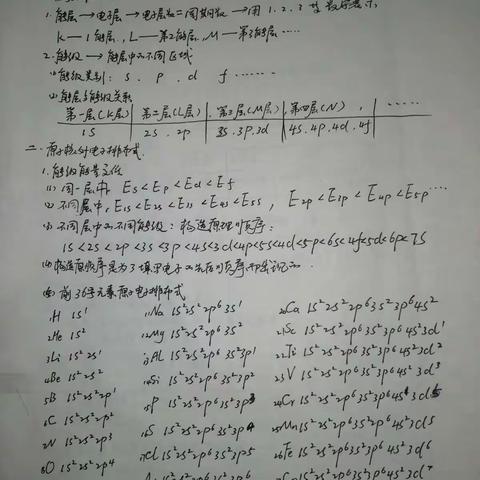 1.能层→电子层→电子层数=周期数→用1.2.3等数字表示
K—1能层，L—第2能层，M—第3能层……
2.能级→能层中的不同区域
(1)能级类别：s、p、d f……
(2)能层与能级关系
第一层(K层) 第二层(L层) 第三层(M层) 第四层(N) ……
1S 2S 、2p 3S、3p、3d 4S、4p、4d、4f
二、原子核外电子排布式
1.能级能量高低
(1)同一层中，Es<Ep<Ed<Ef
(2)不同层中，E1s<E2s<E3s<E4s<E5s ， E2p<E3p<E4p<E5p……
(3)不同层中的不同能级：构造原理顺序：
1S<2S<2p<3S<3p<4S<3d<4p<5S<4d<5p<6S<4f<5d<6p<7S
(4)构造原理顺序是为了填里电子的先后顺序
(5)前36号元素原子电子排布式
1H 1S¹ 11Na 1S²2S²2p⁶3S¹ 20Ca 1S²2S²2p⁶3S²3p⁶4S²
2He 1S² 12Mg 1S²2S²2p⁶3S² 21Sc 1S²2S²2p⁶3S²3p⁶4S²3d¹
3Li 1S²2S¹ 13Al 1S²2S²2p⁶3S²3p¹ 22Ti 1S²2S²2p⁶3S²3p⁶4S²3d²
4Be 1S²2S² 14Si 1S²2S²2p⁶3S²3p² 23V 1S²2S²2p⁶3S²3p⁶4S²3d³
5B 1S²2S²2p¹ 15P 1S²2S²2p⁶3S²3p³ 24Cr 1S²2S²2p⁶3S²3p⁶4S¹3d⁵
6C 1S²2S²2p² 16S 1S²2S²2p⁶3S²3p⁴ 25Mn 1S²2S²2p⁶3S²3p⁶4S²3d⁵
N 1S²2S²2p³ 17Cl 1S²2S²2p⁶3S²3p⁵ 26Fe 1S²2S²2p⁶3S²3p⁶4S²3d⁶
8O 1S²2S²2p⁴ Ar 1S²2S²2p⁶3S²3p⁶ Co 1S²2S²2p⁶3S²3p⁶4S²3d⁷